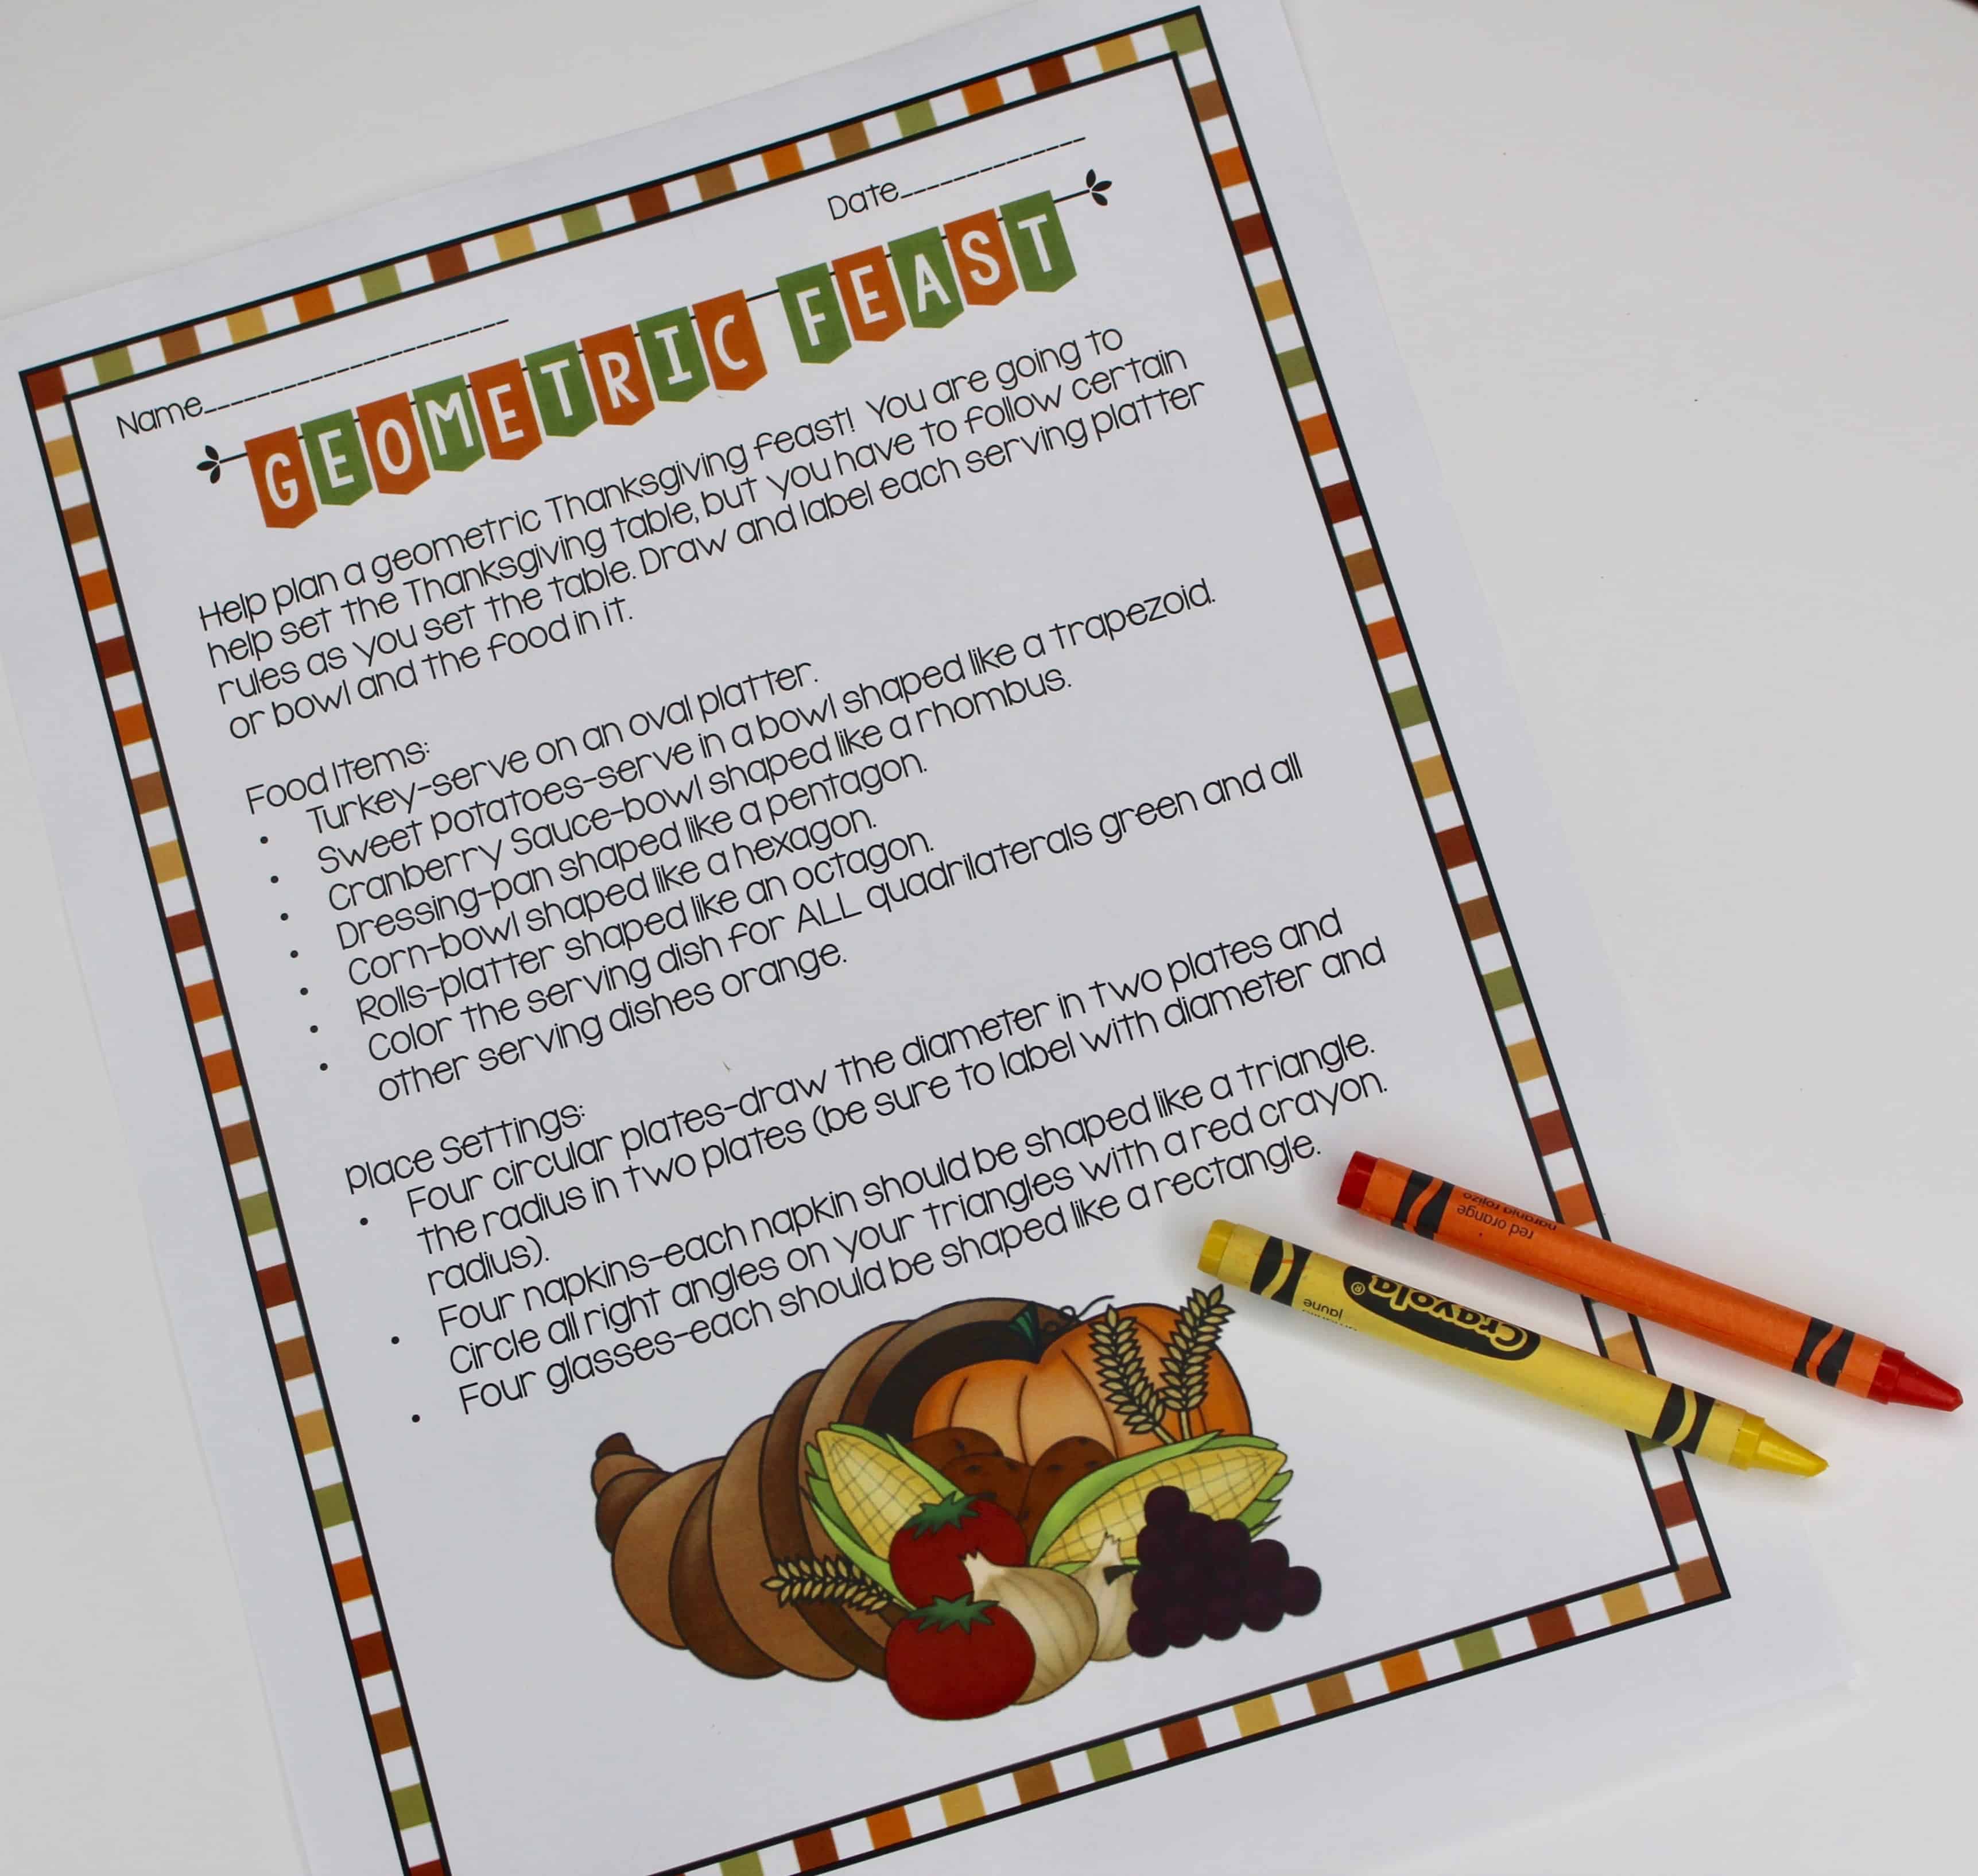 Name
Date
GEOMETRIC FEAST
Help plan a geometric Thanksgiving feast! You are going to
help set the Thanksgiving table, but you have to follow certain
rules as you set the table. Draw and label each serving platter
or bowl and the food in it.
Food Items:
• Turkey-serve on an oval platter.
• Sweet Potatoes-serve in a bowl shaped like a trapezoid.
• Cranberry Sauce-bowl shaped like a rhombus.
• Dressing-pan shaped like a pentagon.
• Corn-bowl shaped like a hexagon.
• Rolls-platter shaped like an octagon.
• Color the serving dish for ALL quadrilaterals green and all
other serving dishes orange.
Place Settings:
• Four circular plates-draw the diameter in two plates and
the radius in two plates (be sure to label with diameter and
radius).
• Four napkins-each napkin should be shaped like a triangle.
Circle all right angles on your triangles with a red crayon.
• Four glasses-each should be shaped like a rectangle.
red orange
naranja rojizo
Crayola®
jaune